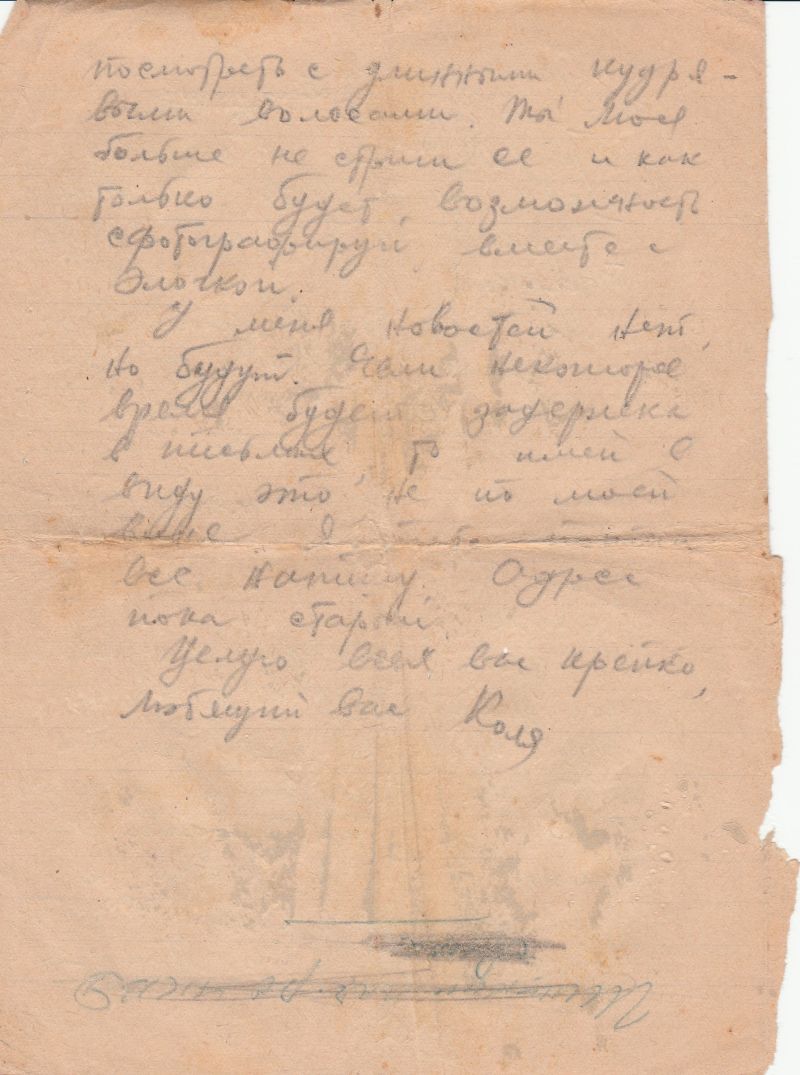 посмотреть с длинными кудря-
выми волосами. Ты моя
больше не стриги ее и как
только будет возможность
сфотографируй вместе с
Элочкой.
У меня новостей нет,
но будут. Если некоторое
время будет задержка
в письмах то имей в
виду это не по моей
вине Я тебе
все напишу. Адрес
пока старый
Целую всех вас крепко,
любящий вас Коля